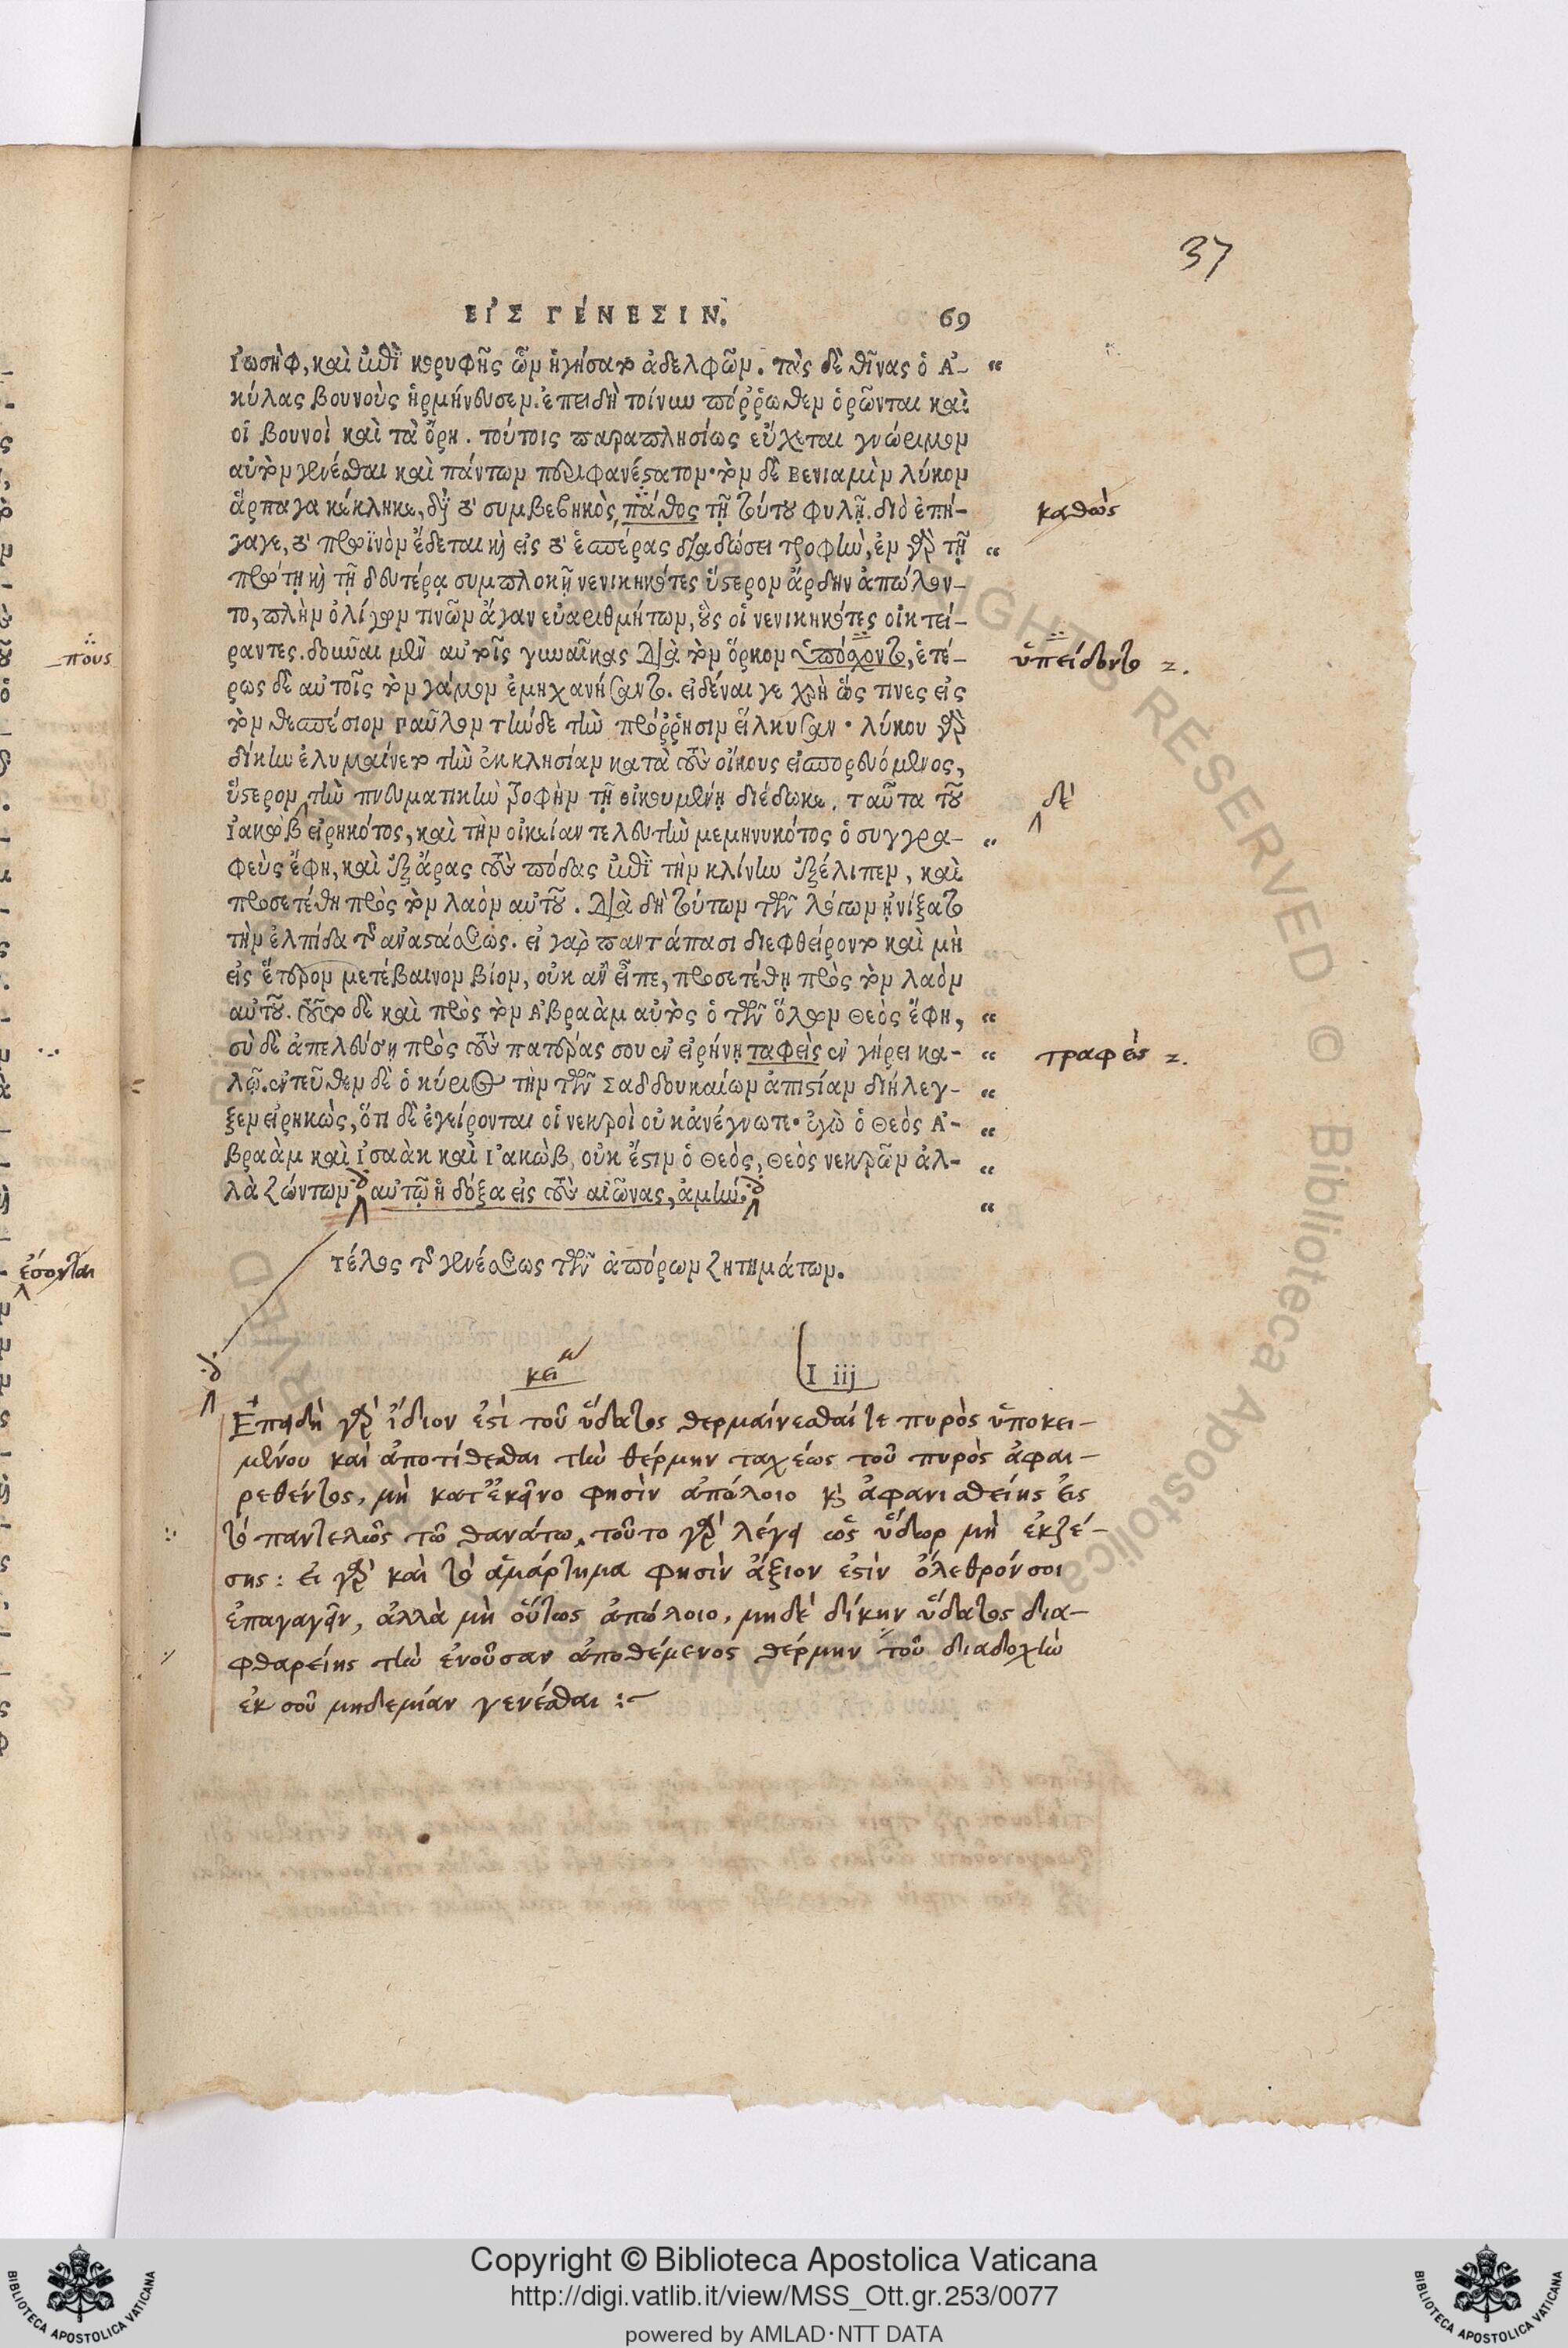 37
ΕἸΣ ΓΈΝΕΣΙΝ. 69
ἰωσὴφ, καὶ ἐπὶ κορυφῆς ὧν ἡγήσατο ἀδελφῶν. τὰς δὲ θῖνας ὁ Ἀ- “
κύλας βουνοὺς ἡρμήνευσεν. ἐπειδὴ τοίνυν πόῤῥωθεν ὁρῶνται καὶ
οἱ βουνοὶ καὶ τὰ ὄρη. τούτοις παραπλησίως εὔχεται γνώριμον
αὐτὸν γενέσθαι καὶ πάντων περιφανέστατον· τὸν δὲ Βενιαμὶν λύκον
ἅρπαγα κέκληκε, διὰ τὸ συμβεβηκὸς πάθος τῇ τούτου φυλῇ. διὸ ἐπή- καθὼς
γαγε, τὸ πρωϊνὸν ἔδεται καὶ εἰς τὸ ἑσπέρας διαδώσει τροφὴν, ἐν γὰρ τῇ “
πρώτῃ καὶ τῇ δευτέρᾳ συμπλοκῇ νενικηκότες ὕστερον ἄρδην ἀπώλον-
το, πλὴν ὀλίγων τινῶν ἄγαν εὐαριθμήτων, οὓς οἱ νενικηκότες οἰκτεί-
ραντες. δοῦναι μὲν αὐτοῖς γυναῖκας διὰ τὸν ὅρκον ὑπόσχοντο, ἑτέ- ὑπείδοντο 2.
ρως δὲ αὐτοῖς τὸν γάμον ἐμηχανήσαντο. εἰδέναι γε χρὴ ὥς τινες εἰς
τὸν θεσπέσιον Γαῦλον τήνδε τὴν πρόῤῥησιν εἵλκυσαν· λύκου γὰρ
δίκην ἐλυμαίνετο τὴν ἐκκλησίαν κατὰ τοὺς οἴκους εἰσπορευόμενος,
ὕστερον τὴν πνευματικὴν τροφὴν τῇ οἰκουμένῃ διέδωκε. ταῦτα τοῦ δὲ
ἰακὼβ εἰρηκότος, καὶ τὴν οἰκείαν τελευτὴν μεμηνυκότος ὁ συγγρα- “
φεὺς ἔφη, καὶ ἐξάρας τοὺς πόδας ἐπὶ τὴν κλίνην ἐξέλιπεν, καὶ
προσετέθη πρὸς τὸν λαὸν αὐτοῦ. διὰ δὴ τούτων τῶν λόγων ᾐνίξατο
τὴν ἐλπίδα τῆς ἀναστάσεως. εἰ γαρ παντάπασι διεφθείροντο καὶ μὴ
εἰς ἕτερον μετέβαινον βίον, οὐκ ἂν εἶπε, προσετέθη πρὸς τὸν λαὸν
αὐτοῦ. τοῦτο δὲ καὶ πρὸς τὸν Ἀβραὰμ αὐτὸς ὁ τῶν ὅλων Θεὸς ἔφη, “
σὺ δὲ ἀπελεύσῃ πρὸς τοὺς πατέρας σου ἐν εἰρήνῃ ταφεὶς ἐν γήρει κα- “ τραφεὶς 2.
λῷ. ἐντεῦθεν δὲ ὁ κύριος τὴν τῶν Σαδδουκαίων ἀπιστίαν διήλεγ- “
ξεν εἰρηκὼς, ὅτι δὲ ἐγείρονται οἱ νεκροὶ οὐκ ἀνέγνωτε· ἐγὼ ὁ Θεὸς Ἀ- “
βραὰμ καὶ ἰσαὰκ καὶ ἰακὼβ, οὐκ ἔστιν ὁ Θεὸς, Θεὸς νεκρῶν ἀλ- “
λὰ ζώντων αὐτῷ ἡ δόξα εἰς τοὺς αἰῶνας, ἀμήν. “
τέλος τῆς γενέσεως τῶν ἀπόρων ζητημάτων.
I iij
Ἐπειδὴ γὰρ ἴδιον ἐστὶ τοῦ ὕδατος θερμαίνεσθαί τε πυρὸς ὑποκει-
μένου καὶ ἀποτίθεσθαι τὴν θέρμην ταχέως τοῦ πυρὸς ἀφαι-
ρεθέντος, μὴ κατ' ἐκεῖνο φησὶν ἀπόλοιο καὶ ἀφανισθείης εἰς
τὸ παντελῶς τῶ θανάτω, τοῦτο γὰρ λέγει ὡς ὕδωρ μὴ ἐκζέ-
σης: εἰ γὰρ καὶ τὸ ἁμάρτημα φησὶν ἄξιον ἐστὶν ὄλεθρόν σοι
ἐπαγαγεῖν, ἀλλὰ μὴ οὕτως ἀπώλοιο, μηδὲ δίκην ὕδατος δια-
φθαρείης τὴν ἐνοῦσαν ἀποθέμενος θέρμην τοῦ διαδοχὴν
ἐκ σοῦ μηδεμίαν γενέσθαι :~
πους
ἔσονται
Copyright © Biblioteca Apostolica Vaticana
http://digi.vatlib.it/view/MSS_Ott.gr.253/0077
powered by AMLAD·NTT DATA